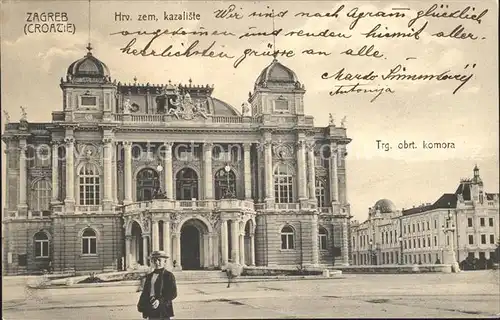 ZAGREB Hrv. zem. kazalište
(CROATIE)
Wir sind nach Agram glücklich
und senden hiermit aller.
herzlichsten grüsse an alle.
Marko
Antonija
Trg. obrt. komora